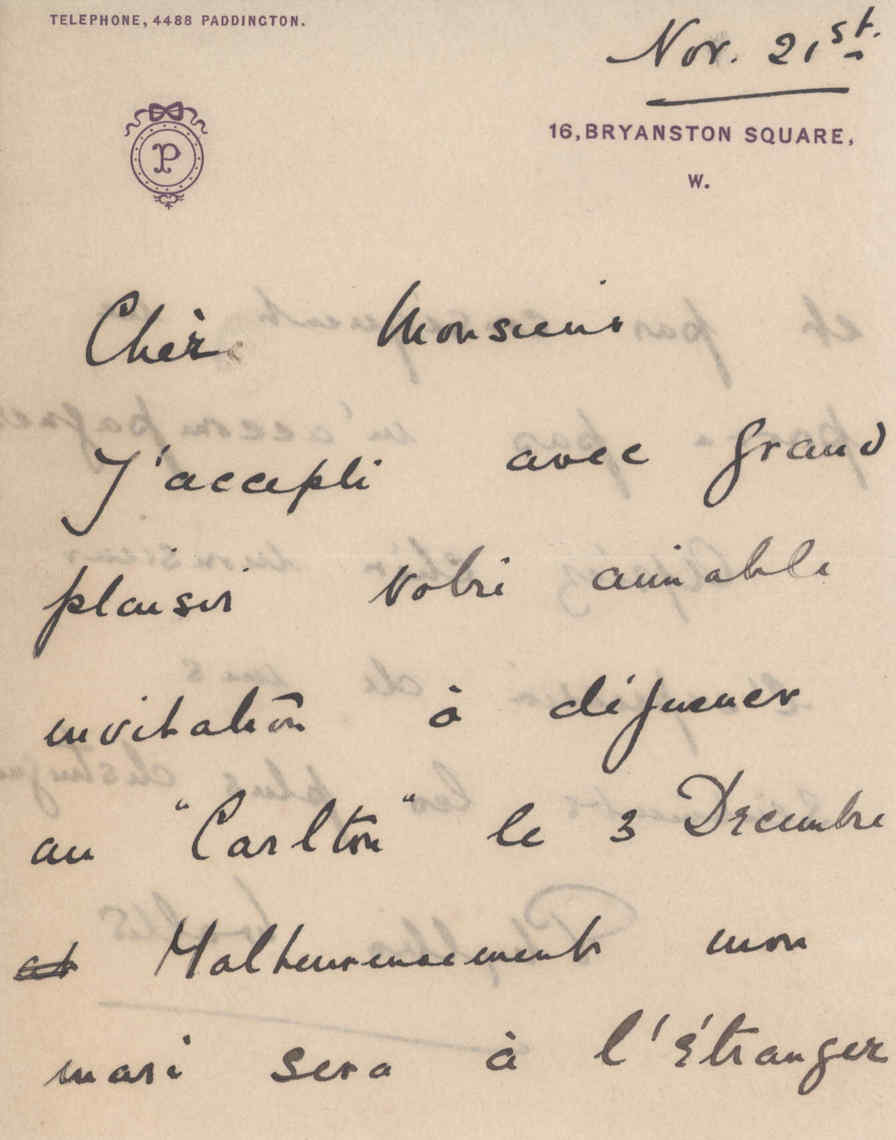 TELEPHONE, 4488 PADDINGTON.
Nov. 21st.
P
16, BRYANSTON SQUARE,
W.
Chèr Monsieur
J'accepte avec grand
plaisir votre aimable
invitation à déjeuner
au "Carlton" le 3 Decembre
et Malheureusement mon
mari sera à l'Étranger